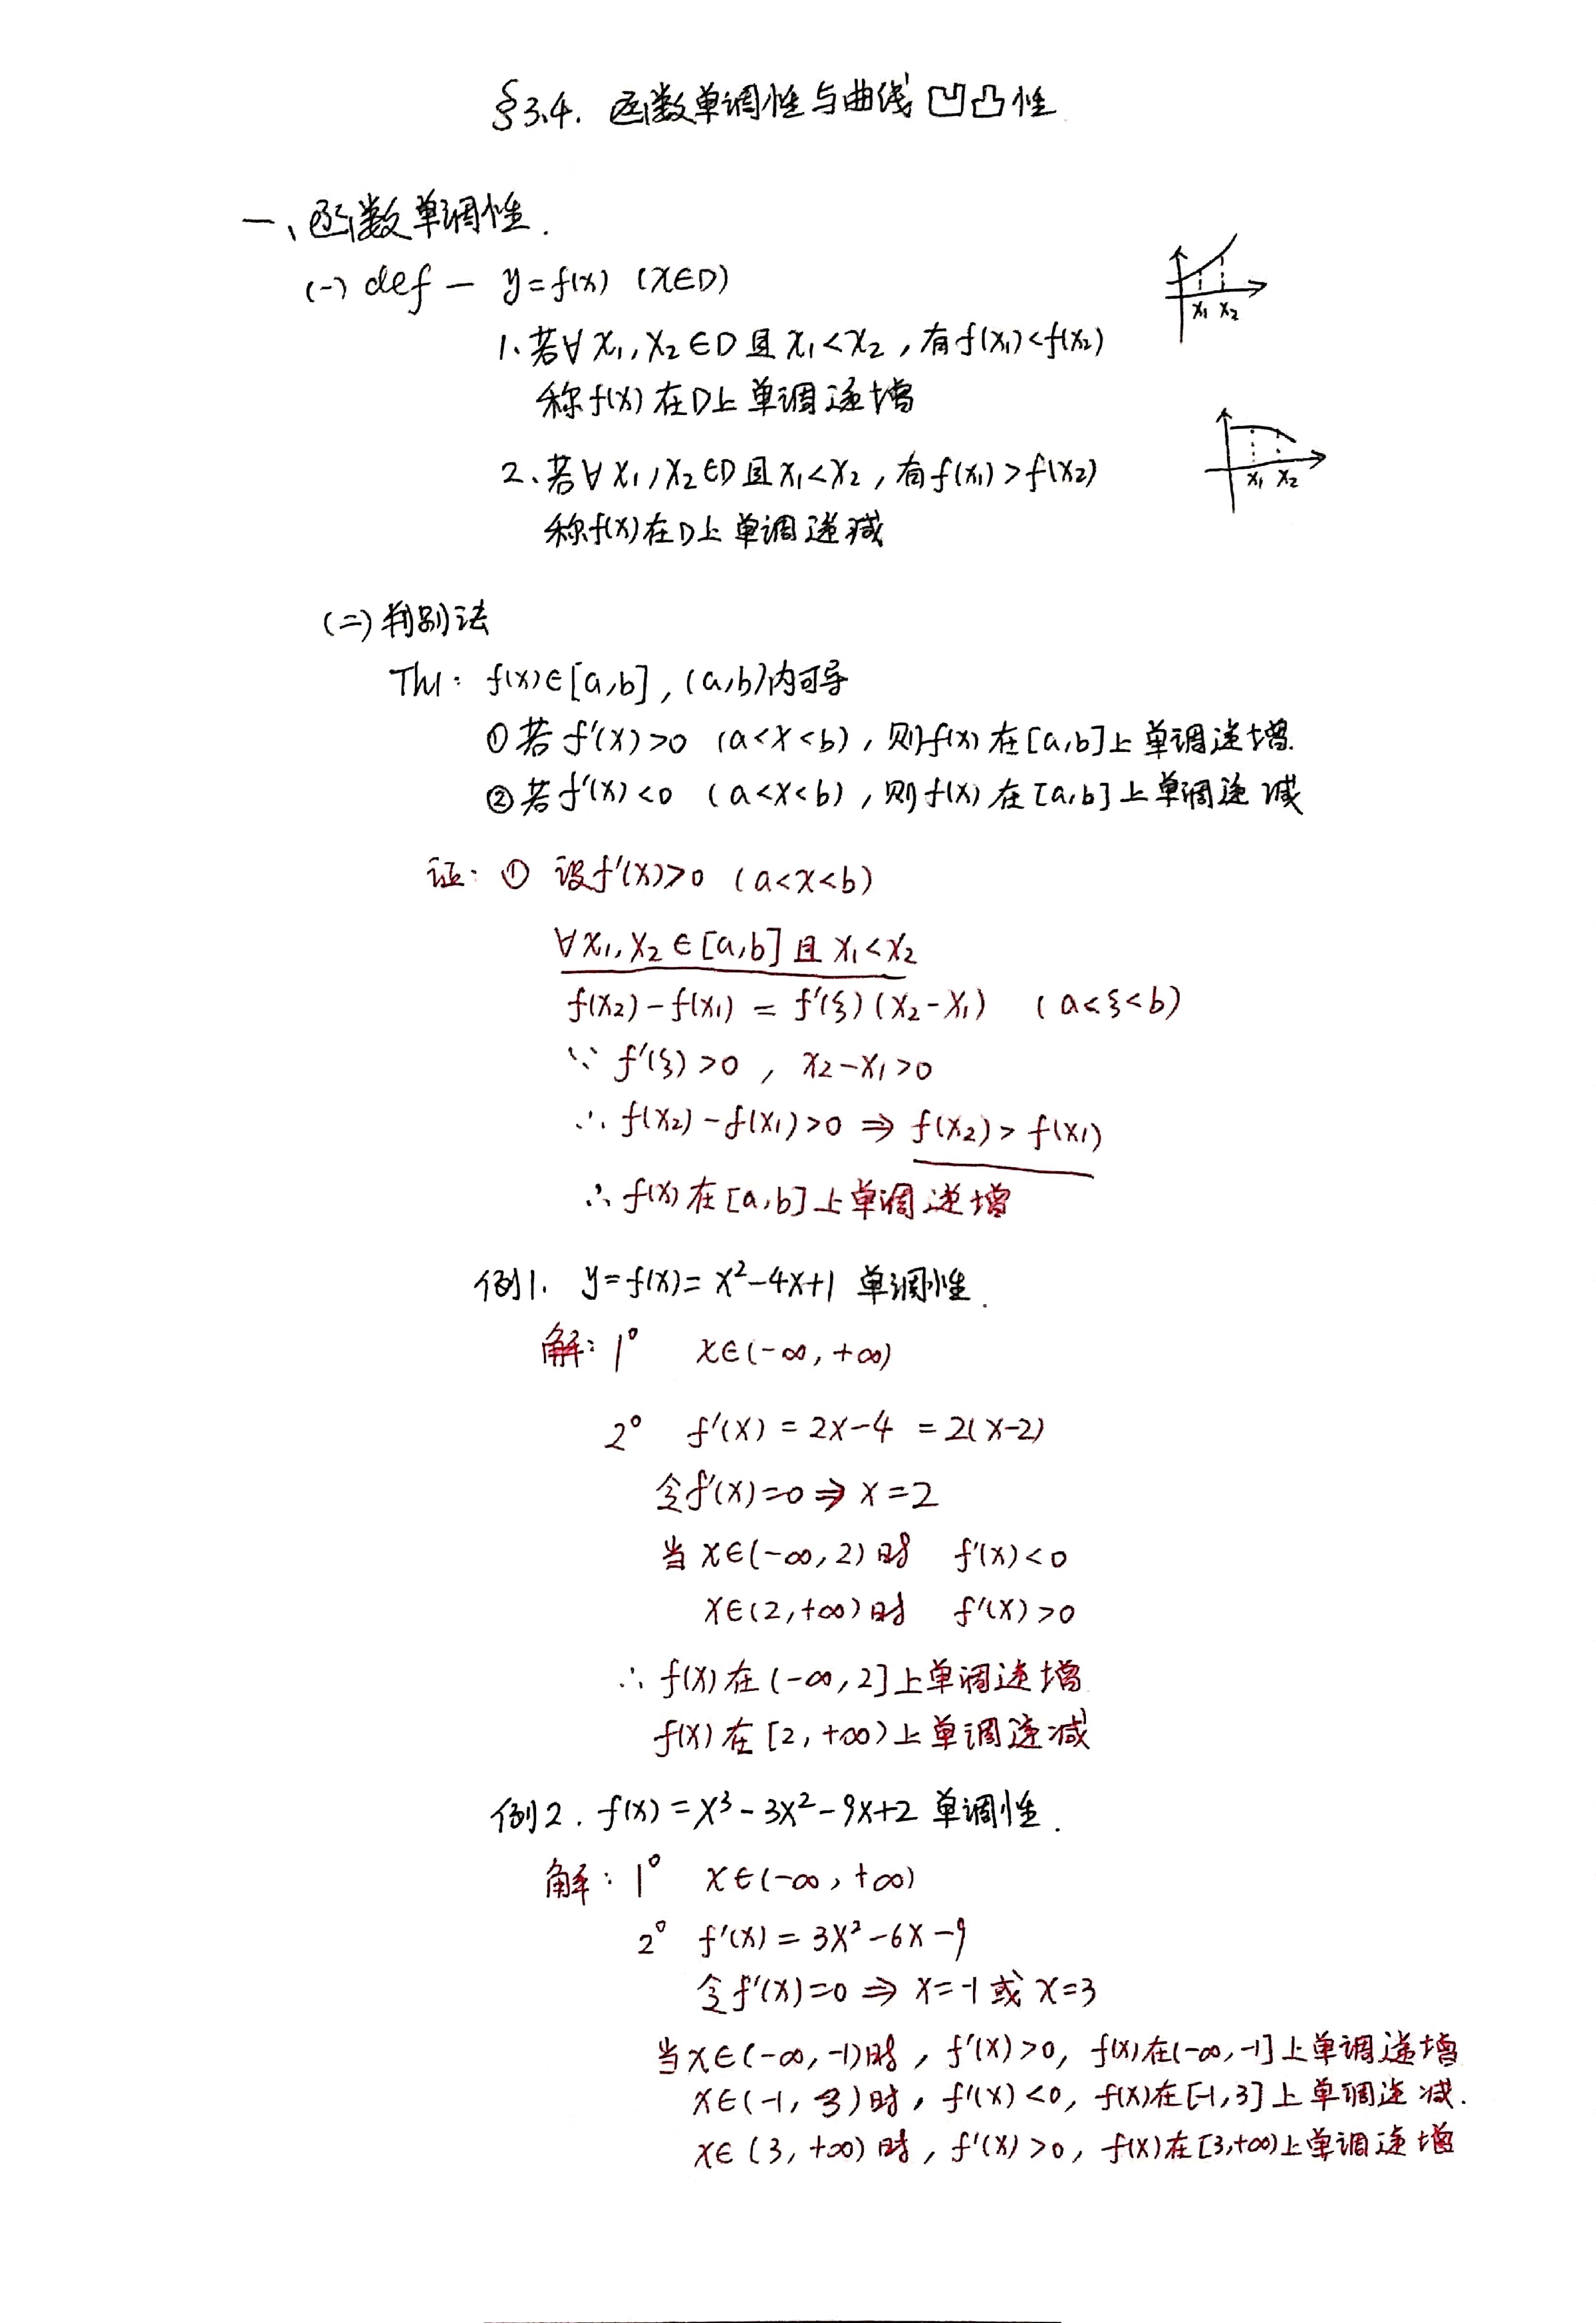 §3.4. 函数单调性与曲线凹凸性
一、函数单调性.
(一) def — y=f(x) (x∈D)
x₁ x₂
1、若∀x₁,x₂∈D且x₁<x₂,有f(x₁)<f(x₂)
称f(x)在D上单调递增
2、若∀x₁,x₂∈D且x₁<x₂,有f(x₁)>f(x₂)
x₁ x₂
称f(x)在D上单调递减
(二)判别法
Th1: f(x)∈[a,b],(a,b)内可导
①若f'(x)>0 (a<x<b),则f(x)在[a,b]上单调递增.
②若f'(x)<0 (a<x<b),则f(x)在[a,b]上单调递减
证:① 设f'(x)>0 (a<x<b)
∀x₁,x₂∈[a,b]且x₁<x₂
f(x₂)-f(x₁)=f'(ξ)(x₂-x₁) (a<ξ<b)
∵ f'(ξ)>0, x₂-x₁>0
∴ f(x₂)-f(x₁)>0 ⇒ f(x₂)>f(x₁)
∴ f(x)在[a,b]上单调递增
例1. y=f(x)=x²-4x+1 单调性.
解: 1° x∈(-∞,+∞)
2° f'(x)=2x-4=2(x-2)
令f'(x)=0 ⇒ x=2
当x∈(-∞,2)时 f'(x)<0
x∈(2,+∞)时 f'(x)>0
∴ f(x)在(-∞,2]上单调递增
f(x)在[2,+∞)上单调递减
例2. f(x)=x³-3x²-9x+2 单调性.
解: 1° x∈(-∞,+∞)
2° f'(x)=3x²-6x-9
令f'(x)=0 ⇒ x=-1或x=3
当x∈(-∞,-1)时,f'(x)>0, f(x)在(-∞,-1]上单调递增
x∈(-1,3)时,f'(x)<0, f(x)在[-1,3]上单调递减.
x∈(3,+∞)时,f'(x)>0, f(x)在[3,+∞)上单调递增